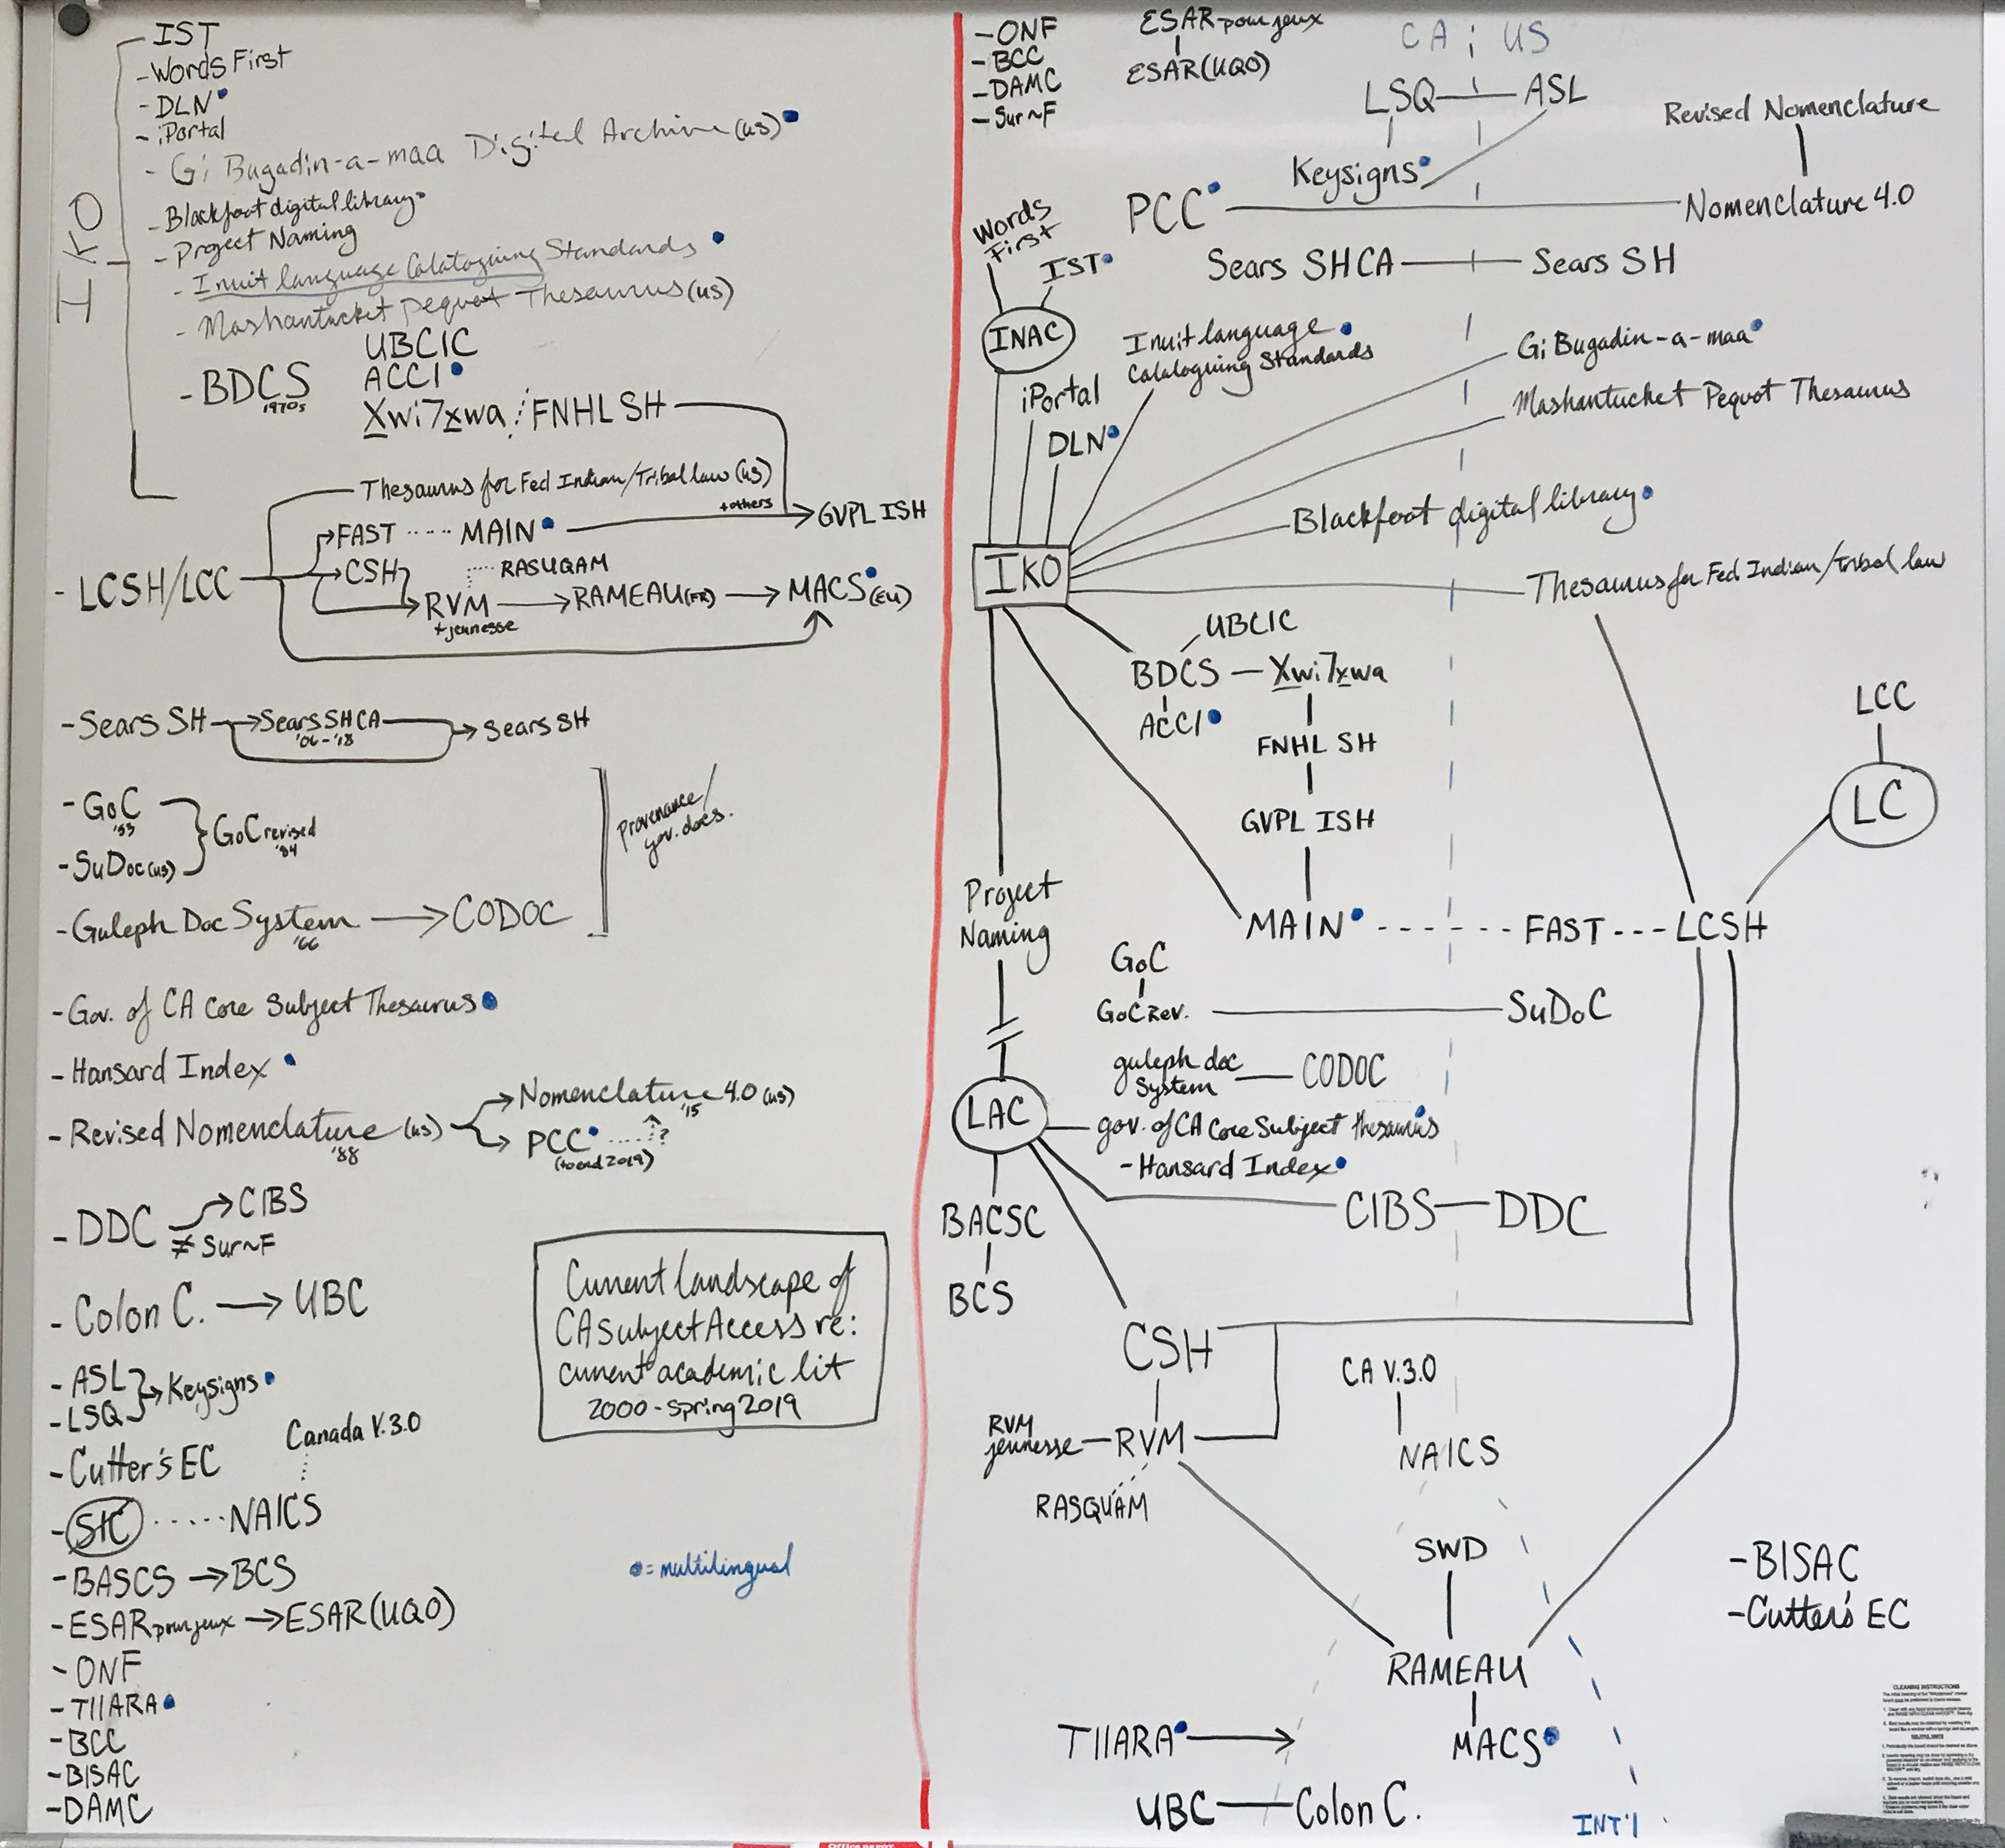 IKO
IST
-Words First
-DLN
-iPortal
-Gi Bugadin-a-maa Digital Archive (us)
-Blackfoot digital library
-Project Naming
-Inuit language Cataloguing Standards
-Mashantucket Pequot Thesaurus (us)
UBCIC
-BDCS
1970s
ACCI
X̲wi7x̲wa / FNHL SH
Thesaurus for Fed Indian/Tribal law (us)
+others
FAST MAIN GVPL ISH
CSH
RASUQAM
-LCSH/LCC
RVM RAMEAU (FR) MACS (EU)
+jeunesse
-Sears SH Sears SHCA Sears SH
'06-'18
-GoC
'53
GoC revised
'84
-SuDoc (us)
Provenance/
gov. docs.
-Guleph Doc System CODOC
'66
-Gov. of CA Core Subject Thesaurus
-Hansard Index
Nomenclature 4.0 (us)
'15
-Revised Nomenclature (us)
'88
PCC ?
(to end 2019)
-DDC CIBS
≠ Sur~F
-Colon C. UBC
-ASL
-LSQ
Keysigns
Canada V.3.0
-Cutter's EC
-SIC NAICS
-BASCS BCS
-ESAR pour jeux ESAR (UQO)
-ONF
-TIIARA
-BCC
-BISAC
-DAMC
Current landscape of
CA Subject Access re:
current academic lit
2000-Spring 2019
= multilingual
-ONF
-BCC
-DAMC
-Sur~F
ESAR pour jeux
ESAR (UQO)
CA US
LSQ ASL
Revised Nomenclature
Keysigns
PCC Nomenclature 4.0
Words
First
IST
Sears SHCA Sears SH
INAC
Inuit language
Cataloguing Standards
Gi Bugadin-a-maa
iPortal
Mashantucket Pequot Thesaurus
DLN
Blackfoot digital library
IKO
Thesaurus for Fed Indian/Tribal law
UBCIC
BDCS X̲wi7x̲wa
ACCI
FNHL SH
GVPL ISH
LCC
LC
Project
Naming
MAIN FAST LCSH
GoC
GoC Rev. SuDoC
guleph doc
System
CODOC
LAC
gov. of CA Core Subject thesaurus
-Hansard Index
BACSC
CIBS DDC
BCS
CSH
CA V.3.0
NAICS
RVM
jeunesse
RVM
RASQUAM
SWD
-BISAC
-Cutter's EC
RAMEAU
TIIARA MACS
UBC Colon C.
INT'l
CLEANING INSTRUCTIONS